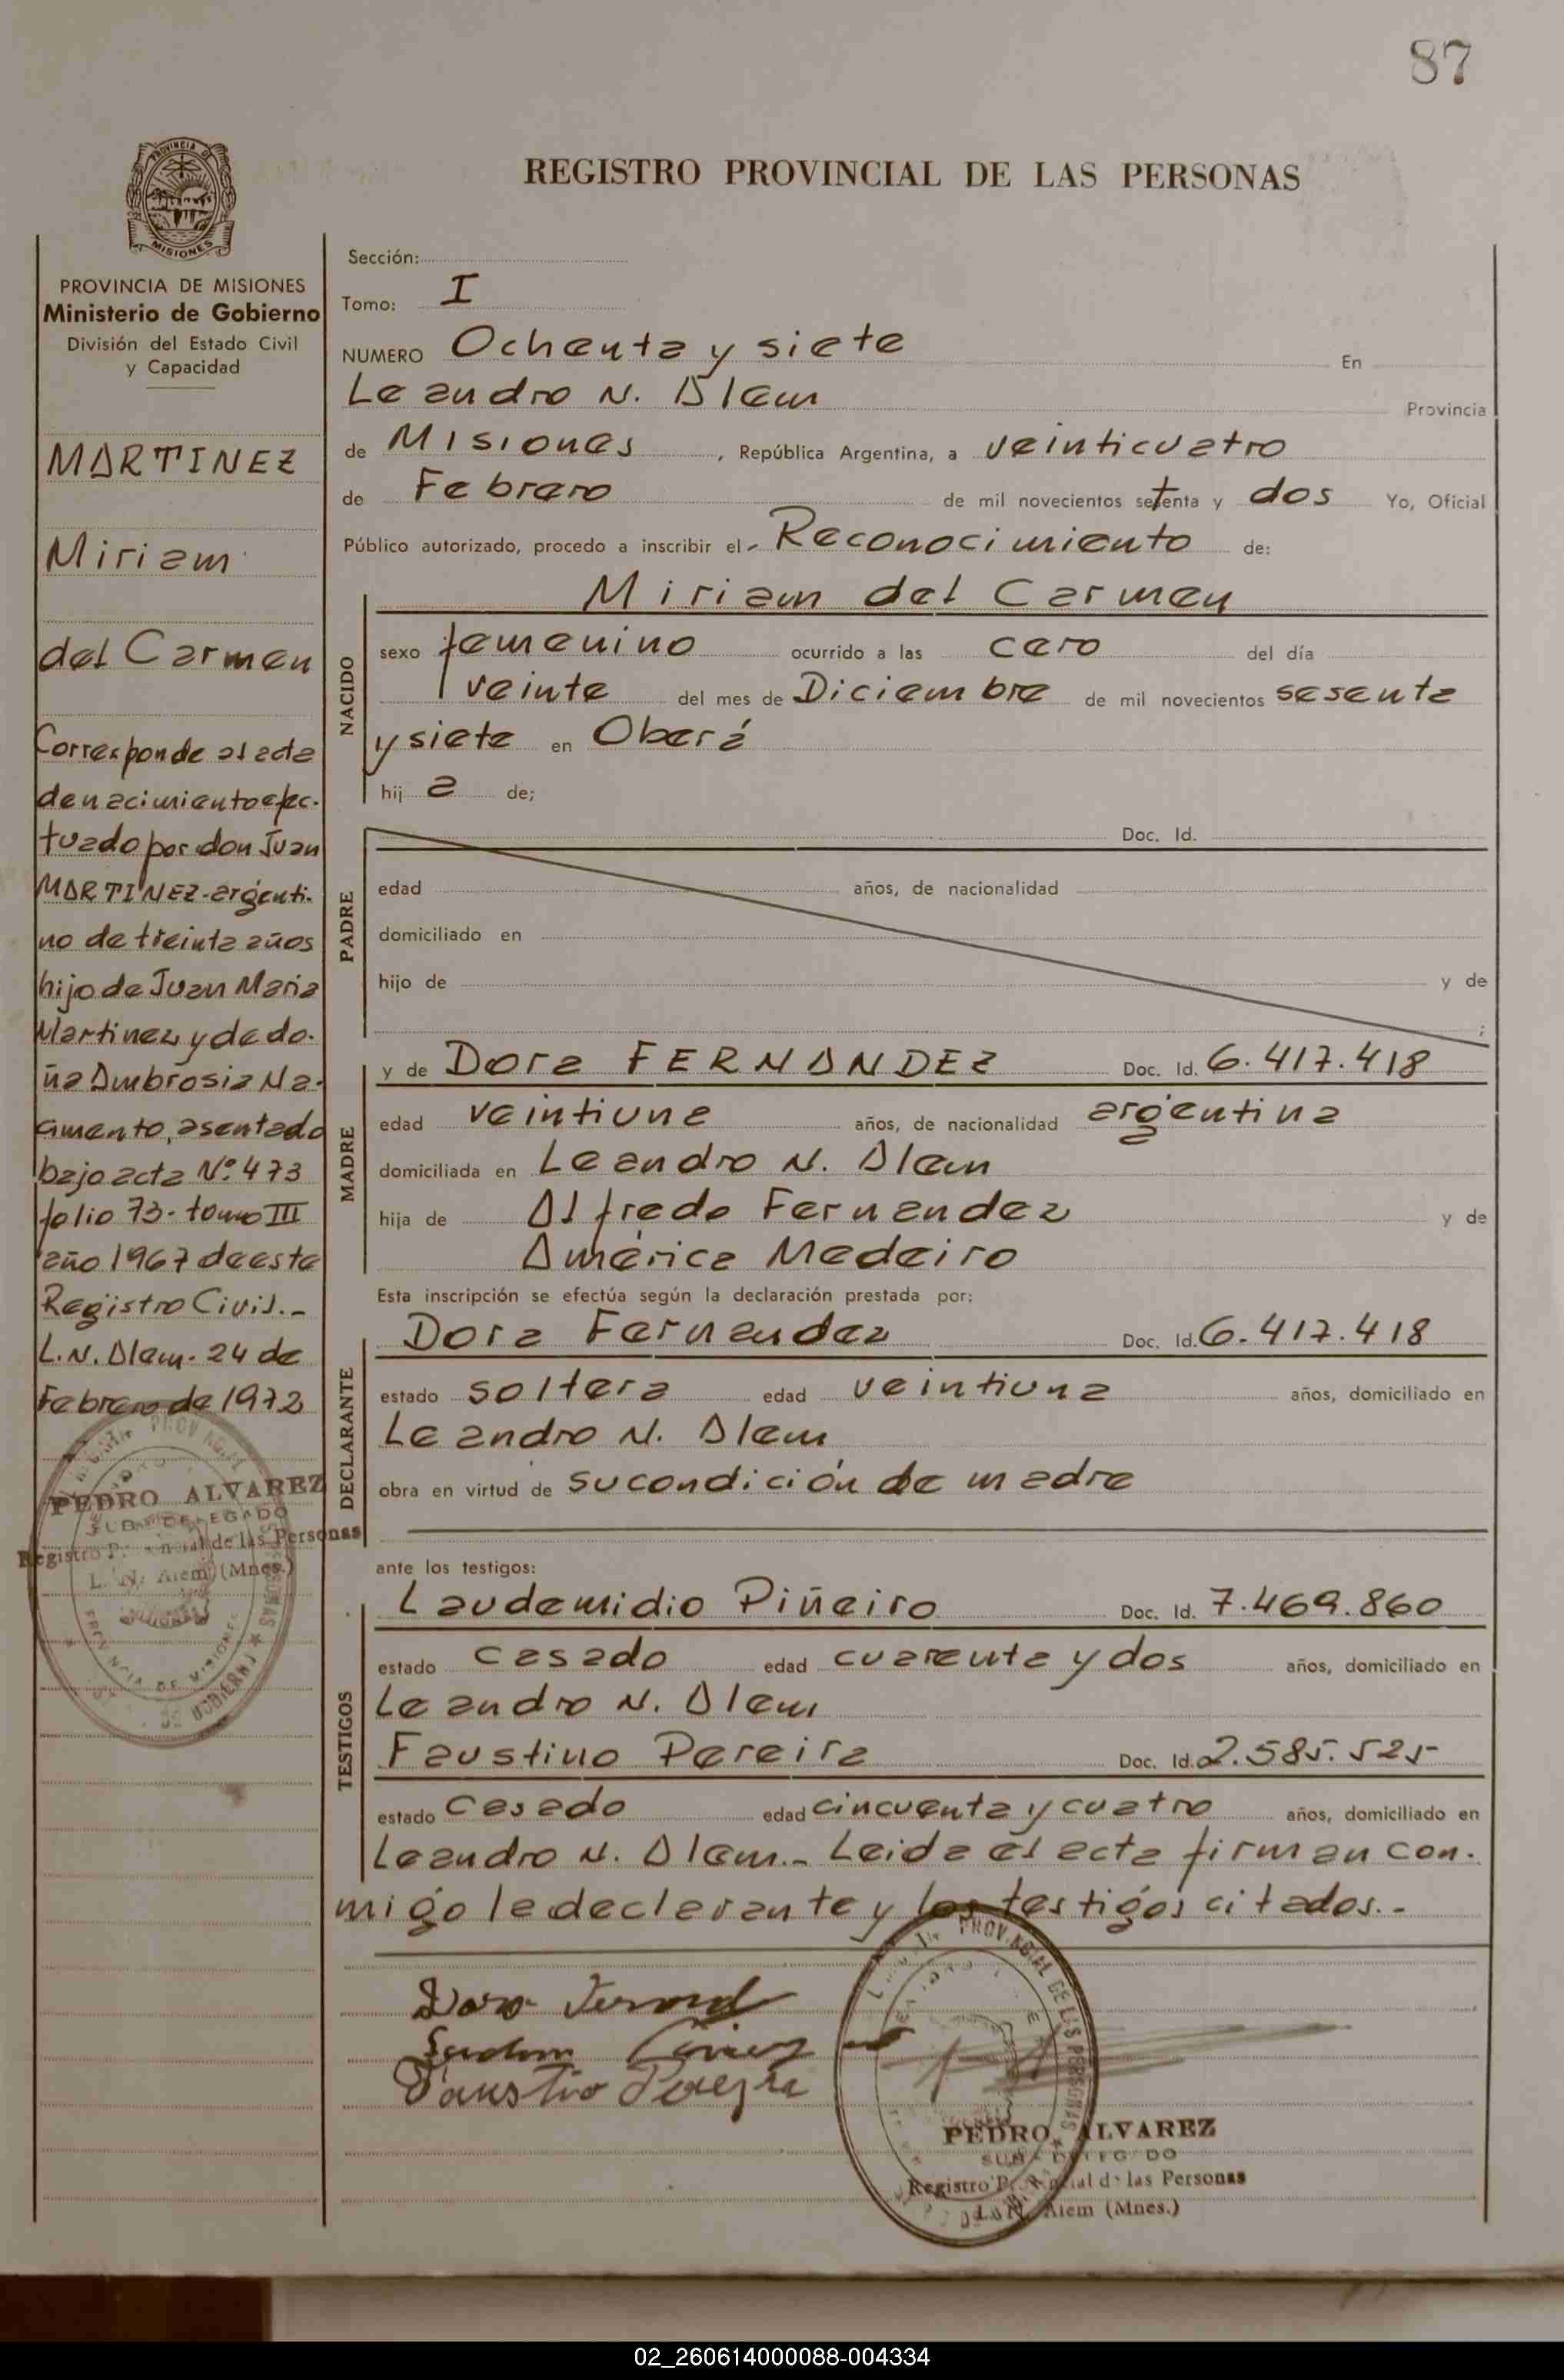 87
REGISTRO PROVINCIAL DE LAS PERSONAS
PROVINCIA DE
MISIONES
PROVINCIA DE MISIONES
Ministerio de Gobierno
División del Estado Civil
y Capacidad
MARTINEZ
Miriam
del Carmen
Corresponde al acta
de nacimiento efec-
tuado por don Juan
MARTINEZ-argenti-
no de treinta años
hijo de Juan Maria
Martinez y de do-
ña Ambrosia Na-
cimento, asentado
bajo acta Nº 473
folio 73- tomo III
año 1967 de este
Registro Civil.-
L.N. Alem- 24 de
Febrero de 1972
PEDRO ALVAREZ
SUB-DELEGADO
Registro Provincial de las Personas
L. N. Alem (Mnes.)
Sección:
Tomo: I
NUMERO Ochenta y siete En
Leandro N. Alem Provincia
de Misiones, República Argentina, a veinticuatro
de Febrero de mil novecientos setenta y dos Yo, Oficial
Público autorizado, procedo a inscribir el - Reconocimiento de:
Miriam del Carmen
NACIDO
sexo femenino ocurrido a las cero del día
veinte del mes de Diciembre de mil novecientos sesenta
y siete en Oberá
hij a de;
PADRE
Doc. Id.
edad años, de nacionalidad
domiciliado en
hijo de y de
;
MADRE
y de Dora FERNANDEZ Doc. Id. 6.417.418
edad veintiuna años, de nacionalidad argentina
domiciliada en Leandro N. Alem
hija de Alfredo Fernandez y de
América Medeiro
Esta inscripción se efectúa según la declaración prestada por:
DECLARANTE
Dora Fernandez Doc. Id. 6.417.418
estado soltera edad veintiuna años, domiciliado en
Leandro N. Alem
obra en virtud de su condición de madre
ante los testigos:
TESTIGOS
Laudemidio Piñeiro Doc. Id. 7.469.860
estado casado edad cuarenta y dos años, domiciliado en
Leandro N. Alem
Faustino Pereira Doc. Id. 2.585.525
estado casado edad cincuenta y cuatro años, domiciliado en
Leandro N. Alem.- Leida el acta firman con-
migo la declarante y los testigos citados.-
Dora
Faustio Pereira
PEDRO ALVAREZ
SUB-DELEGADO
Registro Provincial de las Personas
L. N. Alem (Mnes.)
02_260614000088-004334